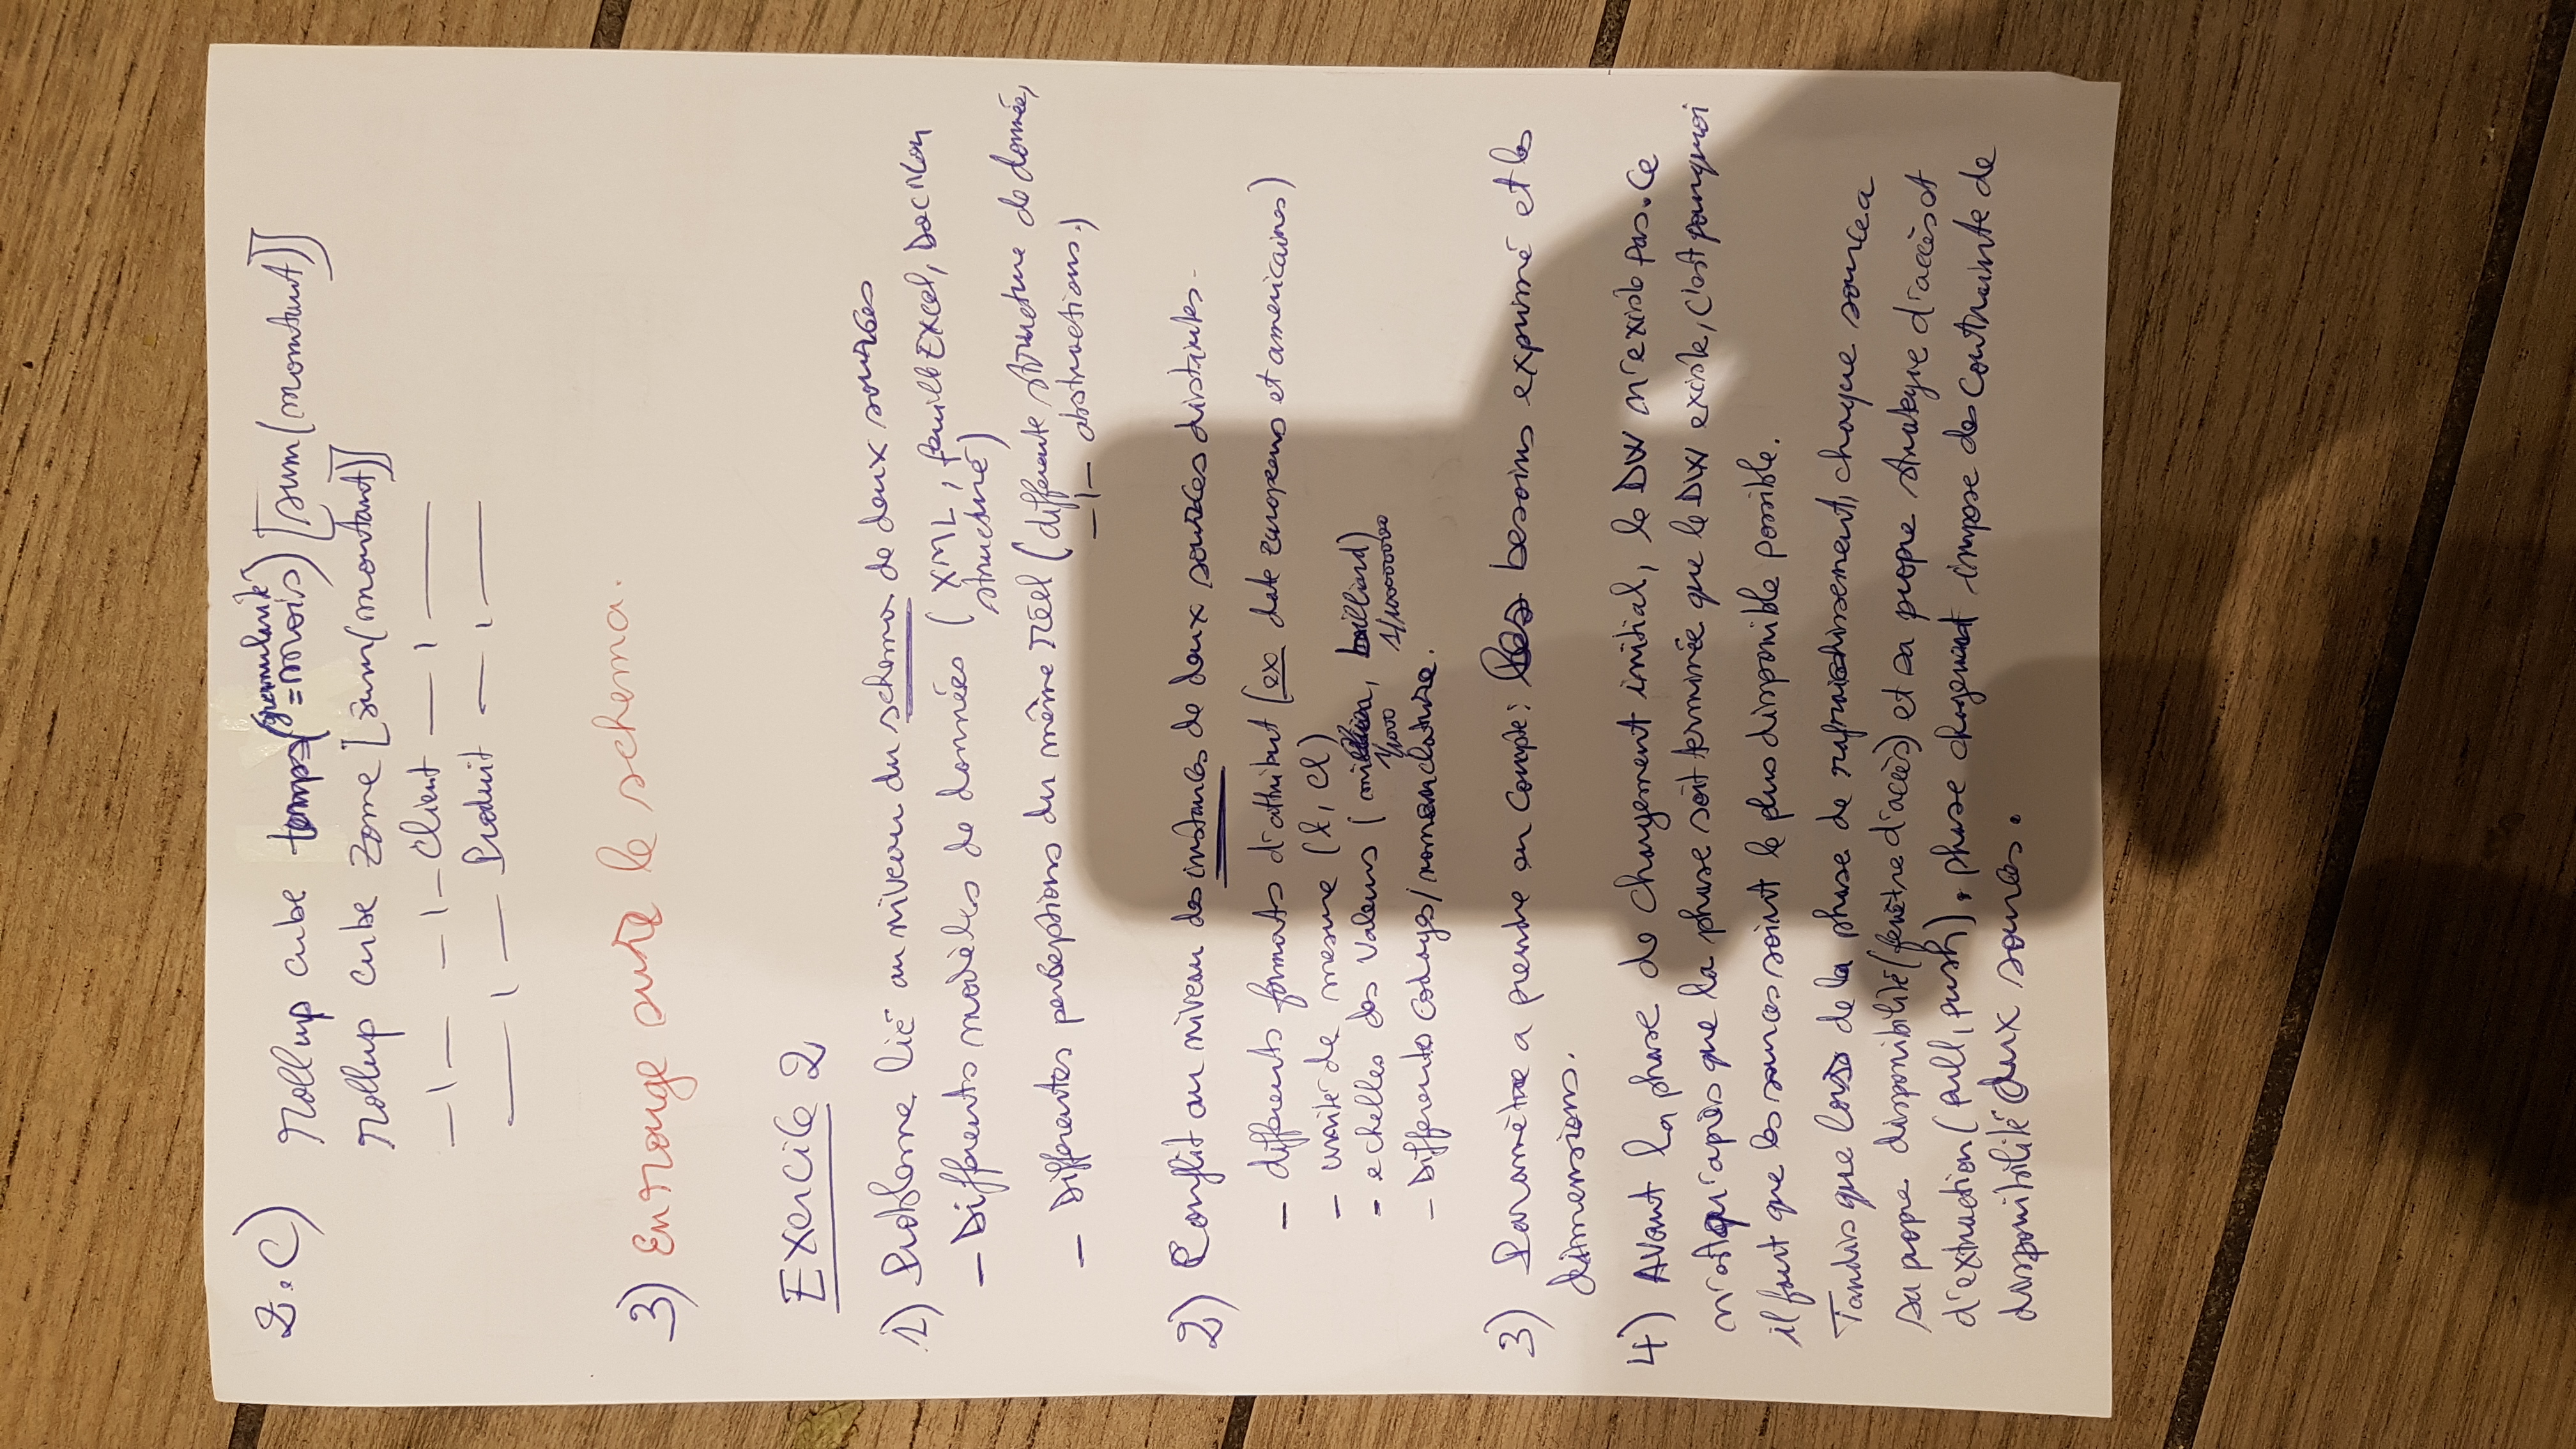 2.C) rollup cube temps(granularité =mois) [sum(montant)]
rollup cube zone [sum(montant)]
—|— —|— Client — | —
— | — Produit — | —
3) En rouge sur le schema.
Exercice 2
1) Probleme lié au niveau du schema de deux sources
— Differents modèles de données ( XML, feuille Excel, Doc Non
structuré)
— Differentes perceptions du même réel ( differente structure de donnée,
—|— abstractions.)
2) Conflit au niveau des instances de deux sources distinctes.
— differents formats d'attribut (ex date européens et americaines)
— unité de mesure (l, cl)
- echelles des valeurs ( , billiard)
1/1000 1/1000000000
— Differents codages/nomenclature.
3) Paramètre a prendre en compte: Les besoins exprimé et les
dimensions.
4) Avant la phase de chargement initial, le DW n'existe pas. Ce
n'est qu'après que la phase soit terminée que le DW existe, c'est pourquoi
il faut que les sources soient le plus disponible possible.
Tandis que lors de la phase de rafraichissement, chaque source a
sa propre disponibilité (fenêtre d'accès) et sa propre strategie d'accès et
d'extraction ( pull, push). phase chargement impose des contrainte de
disponibilité aux sources.